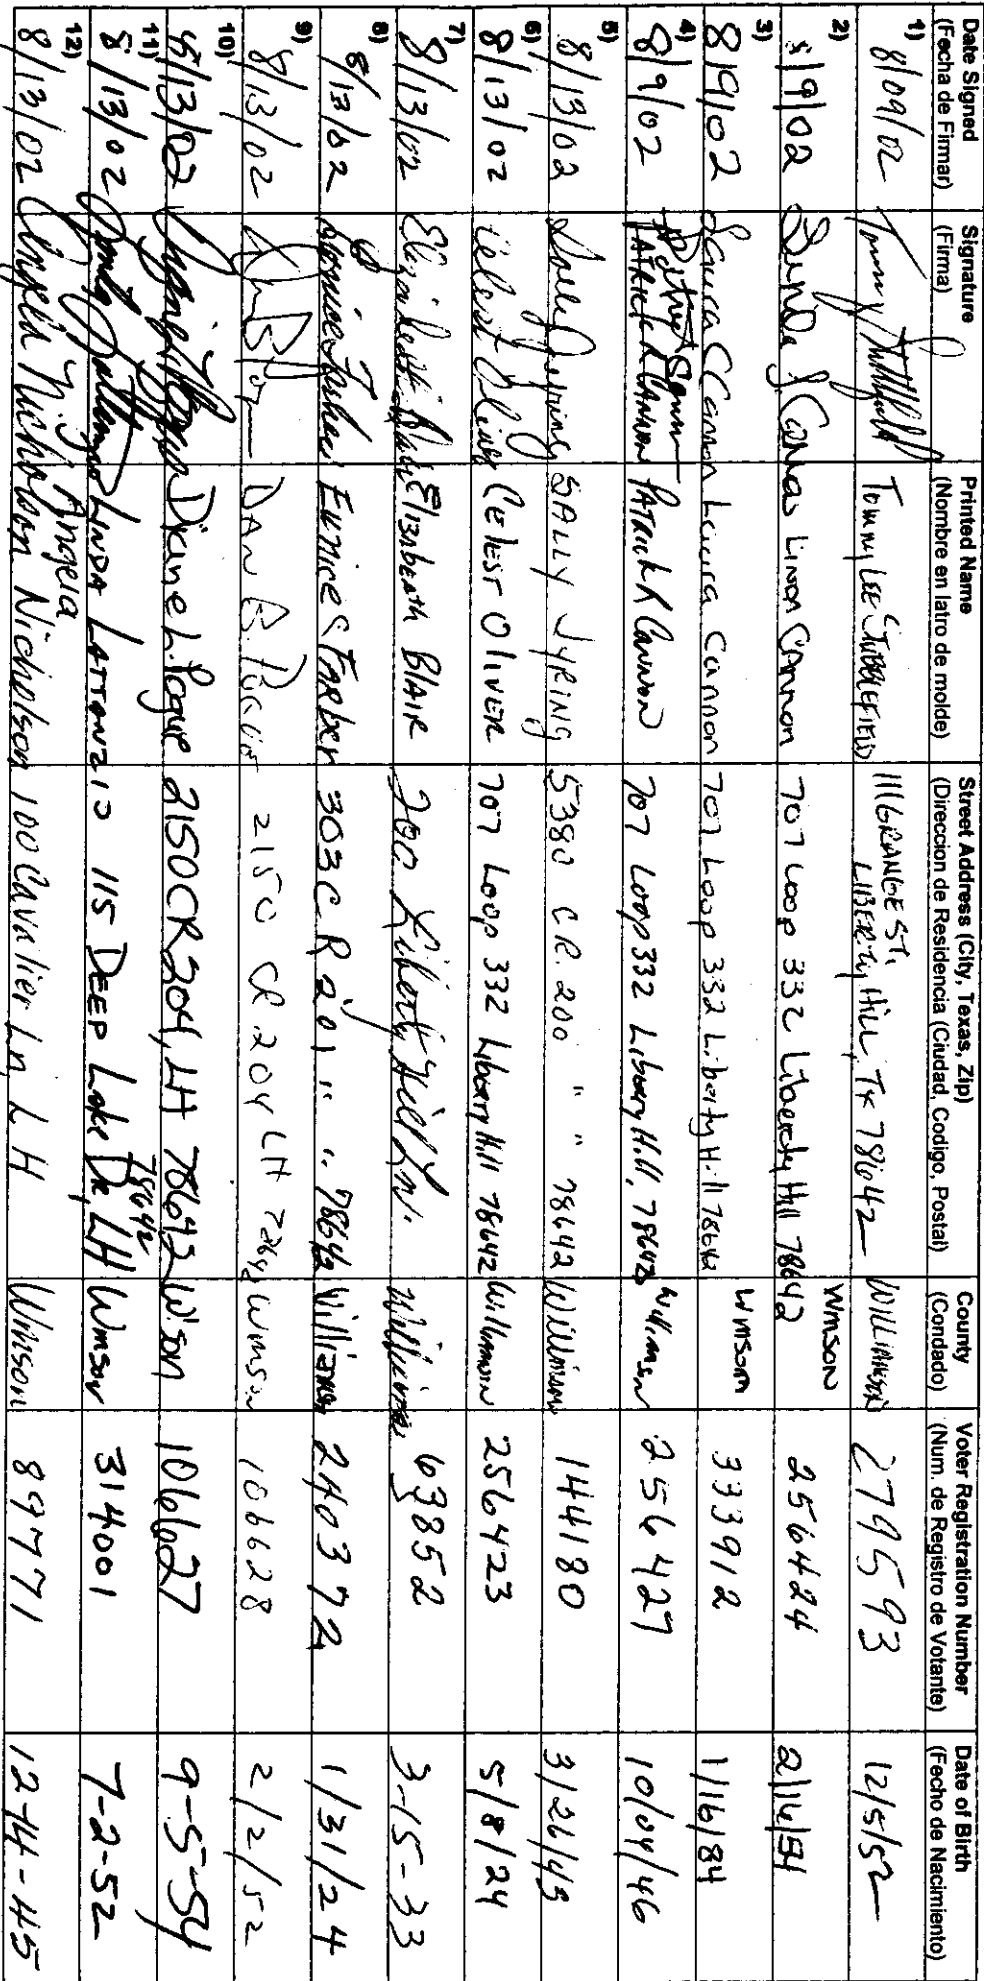 Date Signed (Fecha de Firmar) Signature (Firma) Printed Name (Nombre en latro de molde) Street Address (City, Texas, Zip) (Direccion de Residencia (Ciudad, Codigo, Postal) County (Condado) Voter Registration Number (Num. de Registro de Votante) Date of Birth (Fecho de Nacimiento)
1) 8/09/02 Tommy Lee Stubblefield 111 GRANGE ST. LIBERTY Hill, TX 78642 WILLIAMSON 279593 12/5/52
2) 8/9/02 Cannon 707 Loop 332 Liberty Hill 78642 Wmson 256424
3) 8/9/02 Laura C Cannon Laura Cannon 707 Loop 332 Liberty Hill 78642 Wmson 333912 1/16/84
4) 8/9/02 PATRICK R CANNON Patrick R Cannon 707 Loop 332 Liberty Hill, 78642 Williamson 256427 10/04/46
5) 8/13/02 SALLY JYRING 5380 CR. 200 " " 78642 Williamson 144180 3/26/43
6) 8/13/02 Celest Oliver Celest Oliver 707 Loop 332 Liberty Hill 78642 Williamson 256423 5/8/24
7) 8/13/02 Elizabeth Blair Elizabeath BLAIR 200 Liberty Hill Ln. Williamson 63852 3-15-33
8) 8/13/02 Eunice C Farber 303 C.R 201 " " 78642 Williamson 240372 1/31/24
9) 8/13/02 Dan B. 2150 CR 204 LH 78642 Wmson 106628 2/2/52
10) 8/13/02 Diane L. Pogue 2150 CR 204, LH 78642 W'son 106627 9-5-54
11) 8/13/02 LINDA LATTANZIO 115 DEEP Lake Dr, LH 78642 Wmson 314001 7-2-52
12) 8/13/02 Angela Nicholson Angela Nicholson 100 Cavalier Ln LH Wmson 89771 12-14-45